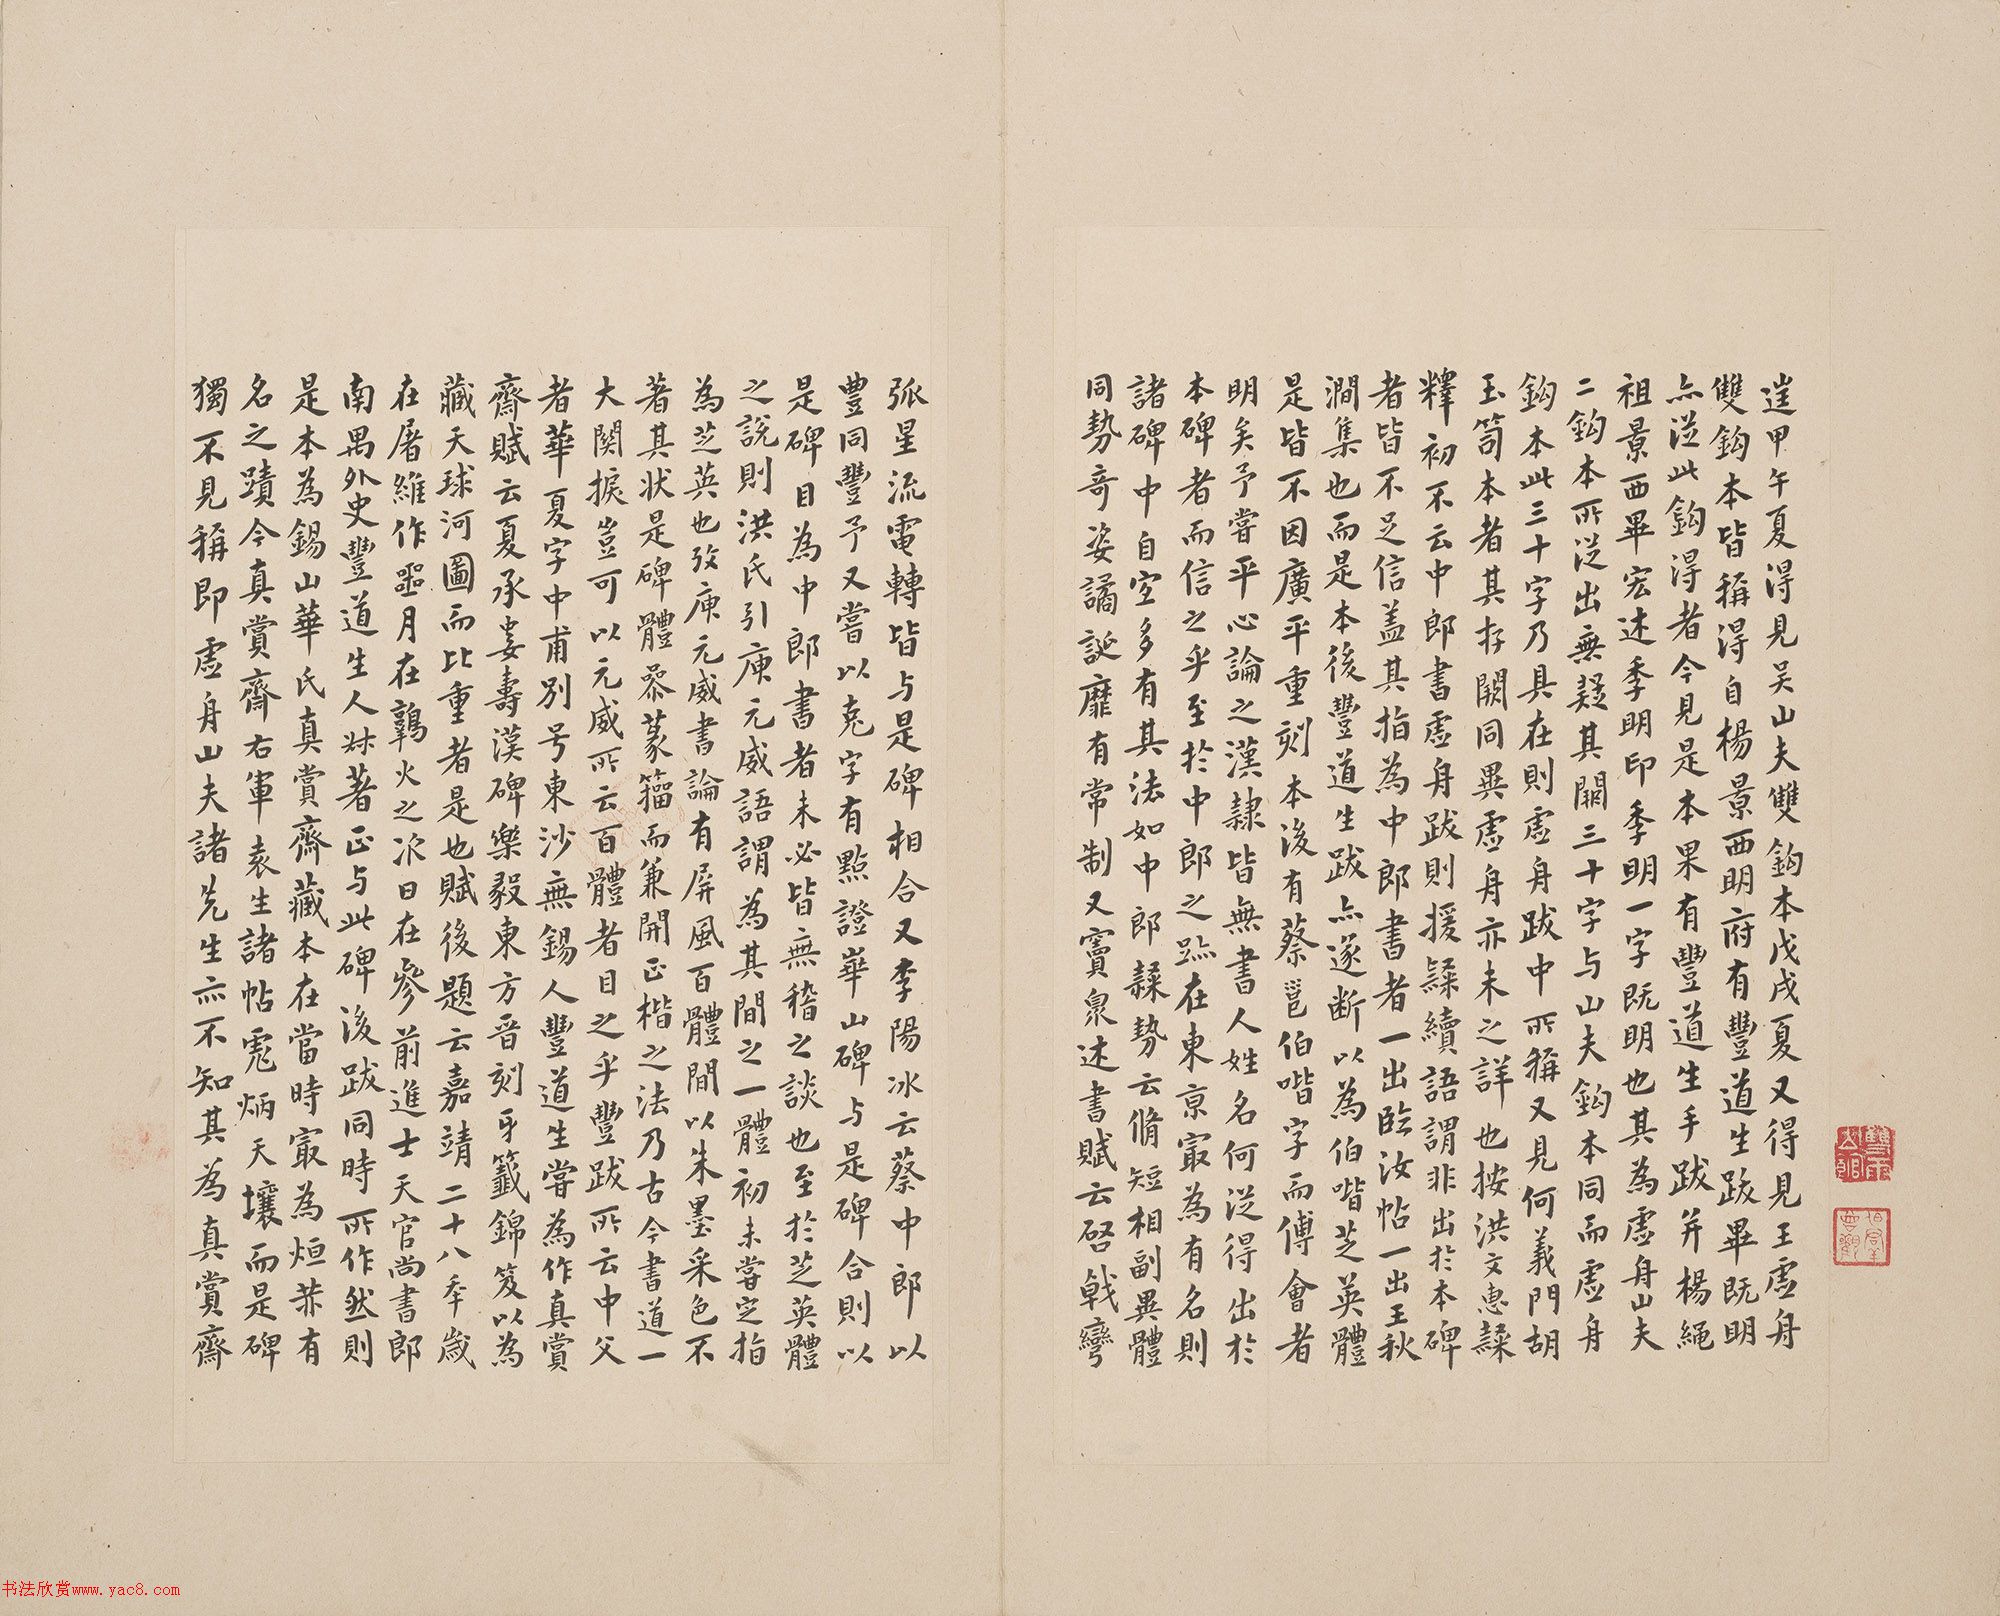 逹甲午夏得見吴山夫雙鈎本戊戌夏又得見王虛舟
雙鈎本皆稱得自楊景西明府有豐道生跋畢既明
亦從此鈎得者今見是本果有豐道生手跋并楊繩
祖景西畢宏述季明印季明一字既明也其為虛舟山夫
二鈎本所從出無疑其闕三十字与山夫鈎本同而虛舟
鈎本此三十字乃具在則虛舟跋中所稱又見何義門胡
玉笥本者其存闕同異虛舟亦未之詳也按洪文惠隸
釋初不云中郎書虛舟跋則援隸續語謂非出於本碑
者皆不足信盖其指為中郎書者一出臨汝帖一出王秋
澗集也而是本後豐道生跋亦遂断以為伯喈芝英體
是皆不因廣平重刻本後有蔡邕伯喈字而傅會者
明矣予嘗平心論之漢隸皆無書人姓名何從得出於
本碑者而信之乎至於中郎之迹在東京㝡為有名則
諸碑中自空多有其法如中郎隸勢云脩短相副異體
同勢奇姿譎誕靡有常制又竇臮述書賦云啓戟彎
弧星流電轉皆与是碑相合又李陽冰云蔡中郎以
豊同豐予又嘗以克字有點證崋山碑与是碑合則以
是碑目為中郎書者未必皆無稽之談也至於芝英體
之說則洪氏引庾元威語謂為其間之一體初未嘗定指
為芝英也攷庾元威書論有屏風百體間以朱墨采色不
著其状是碑體叅篆籀而兼開正楷之法乃古今書道一
大関捩豈可以元威所云百體者目之乎豐跋所云中父
者華夏字中甫別号東沙無錫人豐道生嘗為作真賞
齋賦云夏承婁壽漢碑樂毅東方晋刻牙籤錦笈以為
藏天球河圖而比重者是也賦後題云嘉靖二十八年歲
在屠維作噩月在鶉火之次日在參前進士天官尚書郎
南禺外史豐道生人叔著正与此碑後跋同時所作然則
是本為錫山華氏真賞齋藏本在當時㝡為烜赫有
名之蹟今真賞齋右軍袁生諸帖彪炳天壤而是碑
獨不見稱即虛舟山夫諸先生亦不知其為真賞齋
书法欣赏www.yac8.com